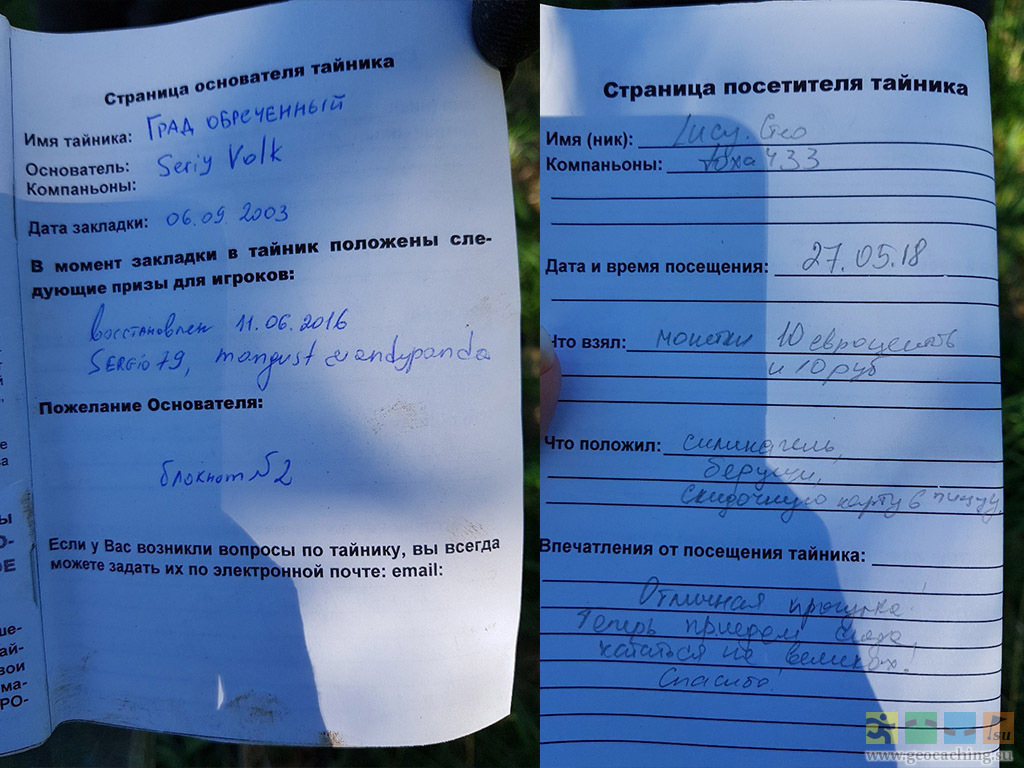 Страница основателя тайника
Имя тайника: ГРАД ОБРЕЧЕННЫЙ
Основатель: Seriy Volk
Компаньоны:
Дата закладки: 06.09.2003
В момент закладки в тайник положены сле-
дующие призы для игроков:
восстановлен 11.06.2016
SERGIO79, mangust & andypanda
Пожелание Основателя:
блокнот №2
Если у Вас возникли вопросы по тайнику, вы всегда
можете задать их по электронной почте: email:
ше-
ай-
вои
ма-
РО-
Страница посетителя тайника
Имя (ник): Lucy.Geo
Компаньоны: toxa433
Дата и время посещения: 27.05.18
Что взял: монетки 10 евроцентъ
и 10 руб
Что положил: силикагель,
беруши,
скидочную карту в пиццу,
Впечатления от посещения тайника:
Отличная прогулка!
Теперь приедем сюда
кататься на великах!
Спасибо!
.su
www.geocaching.su